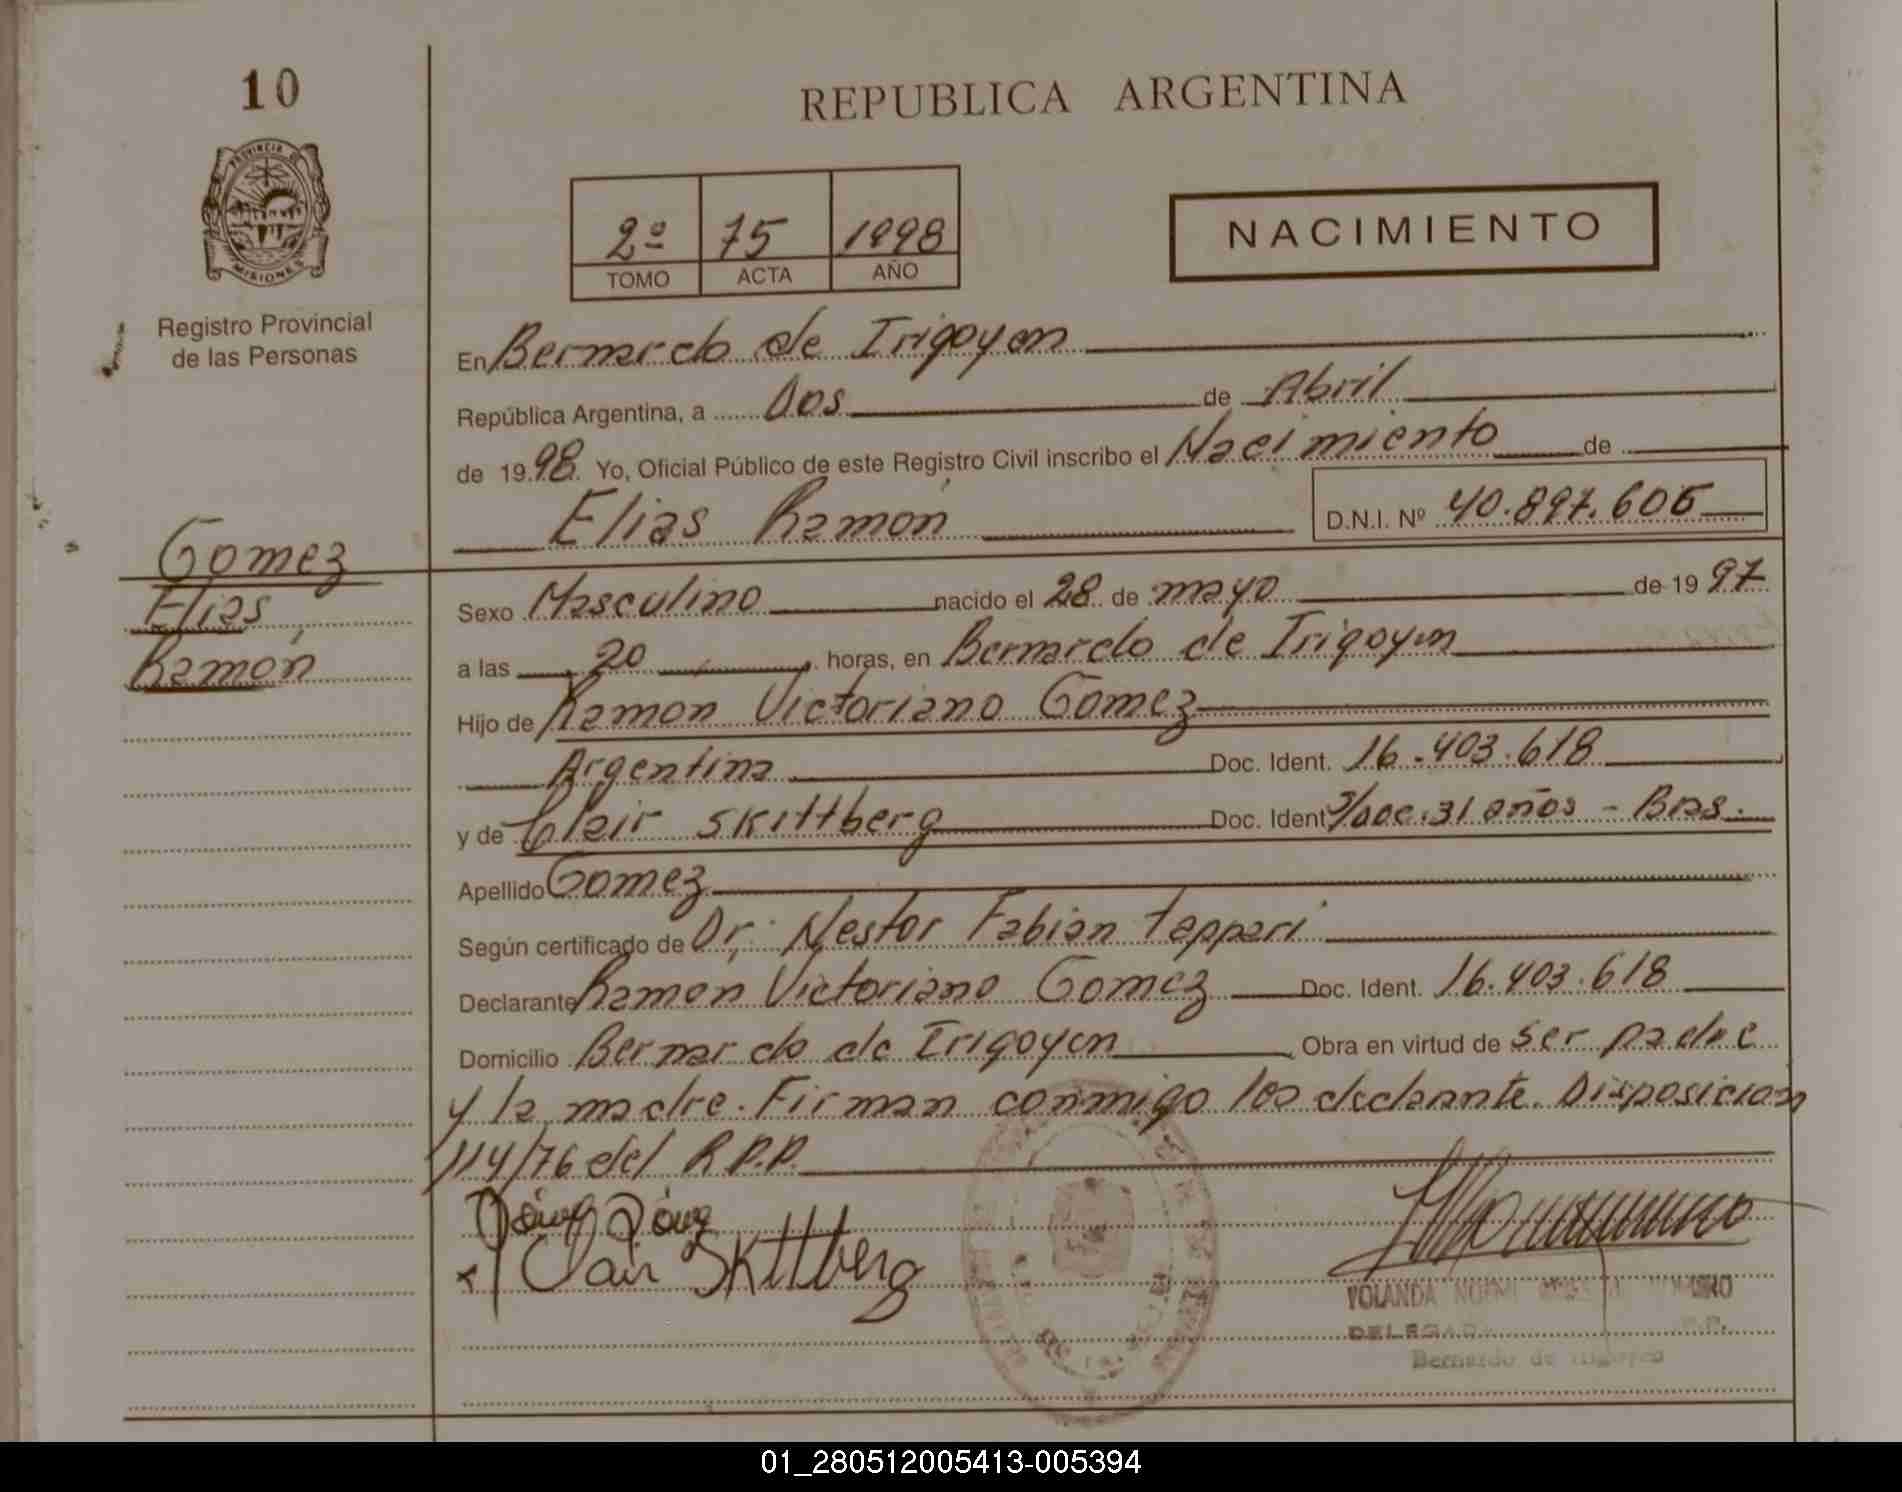 10
REPUBLICA ARGENTINA
PROVINCIA DE
MISIONES
Registro Provincial
de las Personas
2º 75 1998
TOMO ACTA AÑO
NACIMIENTO
En Bernardo de Irigoyen
República Argentina, a Dos de Abril
de 1998. Yo, Oficial Público de este Registro Civil inscribo el Nacimiento de
Elias Ramón D.N.I. Nº 40.897.606
Gomez
Elias
Ramón
Sexo Masculino nacido el 28 de mayo de 1997
a las 20 horas, en Bernardo de Irigoyen
Hijo de Ramon Victoriano Gomez
Argentina Doc. Ident. 16.403.618
y de Clair Skittberg Doc. Ident S/Doc. 31 años - Bras.
Apellido Gomez
Según certificado de Dr. Nestor Fabian Tappari
Declarante Ramon Victoriano Gomez Doc. Ident. 16.403.618
Domicilio Bernardo de Irigoyen Obra en virtud de ser padre
y la madre. Firman conmigo los declarante. Disposicion
114/76 del R.P.P.
Clair Skittberg
YOLANDA
Bernardo de Irigoyen
01_280512005413-005394